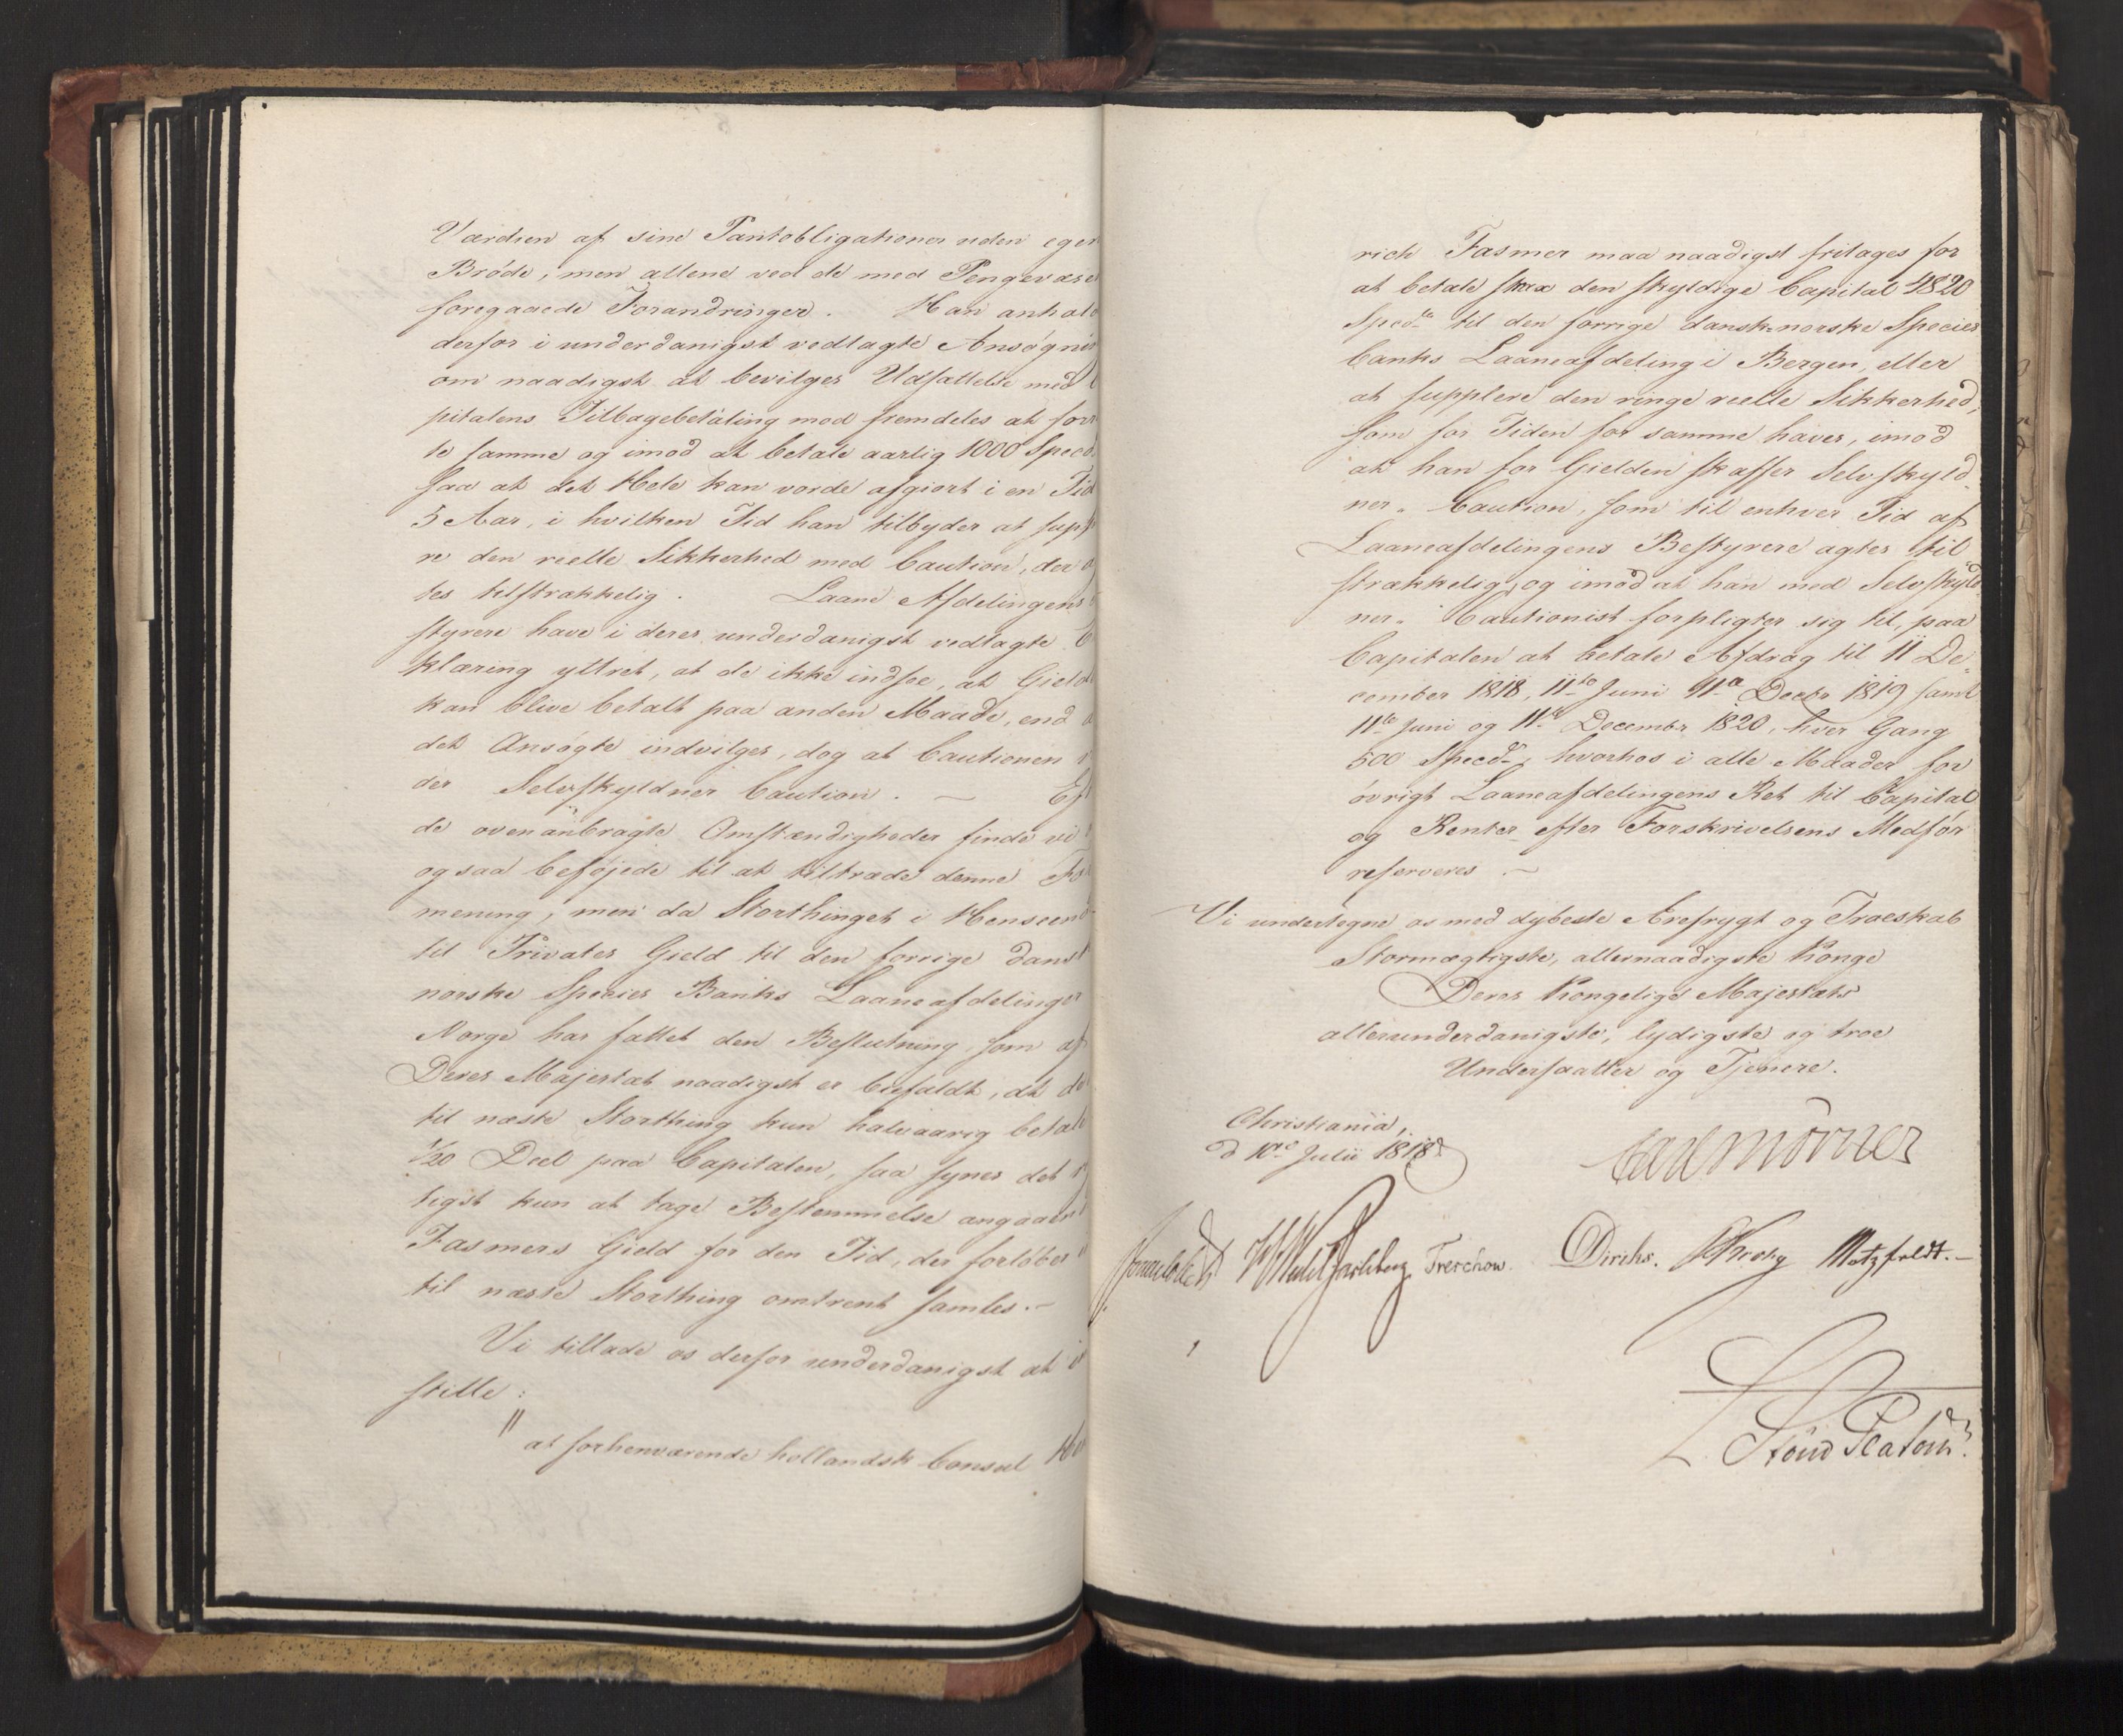 Værdien af sine Pantobligationer uden egen
Bröde, men allene ved de med Pengevæse
foregaaede Forandringer. Han anhold
derfor i underdanigst vedlagte Ansögni
om naadigst at bevilges Udsættelse med
pitalens Tilbagebetaling mod fremdeles at forr
te samme og imod at betale aarlig 1000 Specd
saa at det Hele kan vorde afgiort i en Tid
5 Aar, i hvilken Tid han tilbyder at supp
re den reelle Sikkerhed med Caution, der a
tes tilstrækkelig. Laane Afdelingens
styrere have i deres underdanigst vedlagte
klæring yttret, at de ikke indsee, at Gield
kan blive betalt paa anden Maade, end
det Ansögte indvilges, dog at Cautionen
der Selvskyldner Caution. — Eft
de ovenanbragte Omstændigheder finde vi
ogsaa beföjede til at tiltræde denne
mening, men da Storthinget i Henseend
til Privates Gield til den forrige dansk
norske Species Banks Laaneafdelinger
Norge har fattet den Beslutning, som af
Deres Majestæt naadigst er bifaldt, at de
til næste Storthing kun halvaarig betale
1/20 Deel paa Capitalen, saa synes det
tigst kun at tage Bestemmelse angaaen
Fasmers Gield for den Tid, der forlöber
til næste Storthing omtrent samles. —
Vi tillade os derfor underdanigst at in
stille:
" at forhenværende hollandsk Consul Hen
rich Fasmer maa naadigst fritages for
at betale strax den skyldige Capital 4820
Specd. til den forrige dansk-norske Species
banks Laaneafdeling i Bergen, eller
at supplere den ringe reelle Sikkerhed,
som for Tiden for samme haves, imod
at han for Gielden skaffer Selvskyld-
ner-Caution, som til enhver Tid af
Laaneafdelingens Bestyrere agtes til
strækkelig, og imod at han med Selvskyld
ner-Cautionist forpligter sig til, paa
Capitalen at betale Afdrag til 11 De-
cember 1818, 11te Juni 11te Decbr 1819 samt
11te Juni og 11te Decembr 1820, hver Gang
500 Specd.; hvorhos i alle Maader for
övrigt Laaneafdelingens Ret til Capital
og Renter efter Forskrivelsens Medför
reserveres. —
Vi undertegne os med dybeste Ærefrygt og Troeskab
Stormægtigste, allernaadigste Konge
Deres Kongelige Majestæts
allerunderdanigste, lydigste og troe
Undersaatter og Tjenere.
Christiania,
d 10de Julii 1818
Carl Mörner
Sommerhielm WWedel Jarlsberg Treschow. Diriks. Krohg Motzfeldt. —
Stoud Platou